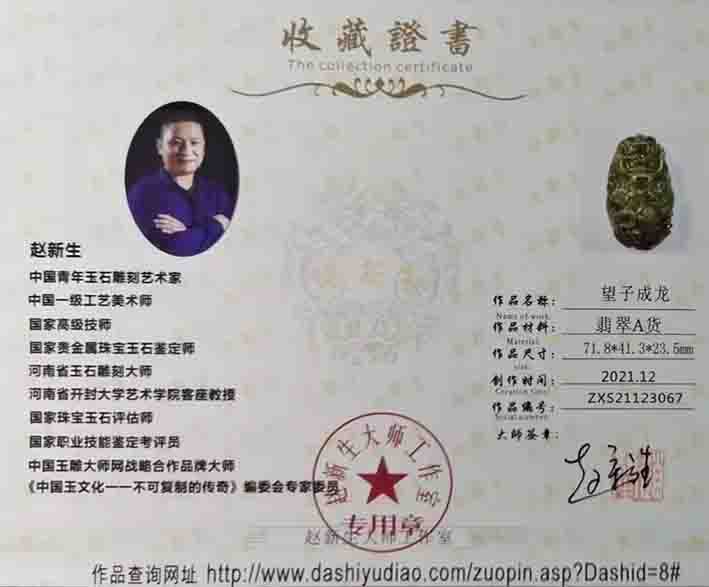 收藏證書
The collection certificate
赵新生
中国青年玉石雕刻艺术家
中国一级工艺美术师
国家高级技师
国家贵金属珠宝玉石鉴定师
河南省玉石雕刻大师
河南省开封大学艺术学院客座教授
国家珠宝玉石评估师
国家职业技能鉴定考评员
中国玉雕大师网战略合作品牌大师
《中国玉文化一一不可复制的传奇》编委会专家委员
作品名称: 望子成龙
Name of work:
作品材料: 翡翠A货
Material:
作品尺寸: 71.8*41.3*23.5mm
size:
创作时间: 2021.12
Creation time:
作品编号: ZXS21123067
大师签章:
赵新生
赵新生大师工作室
专用章
赵新生大师工作室
作品查询网址 http://www.dashiyudiao.com/zuopin.asp?Dashid=8#